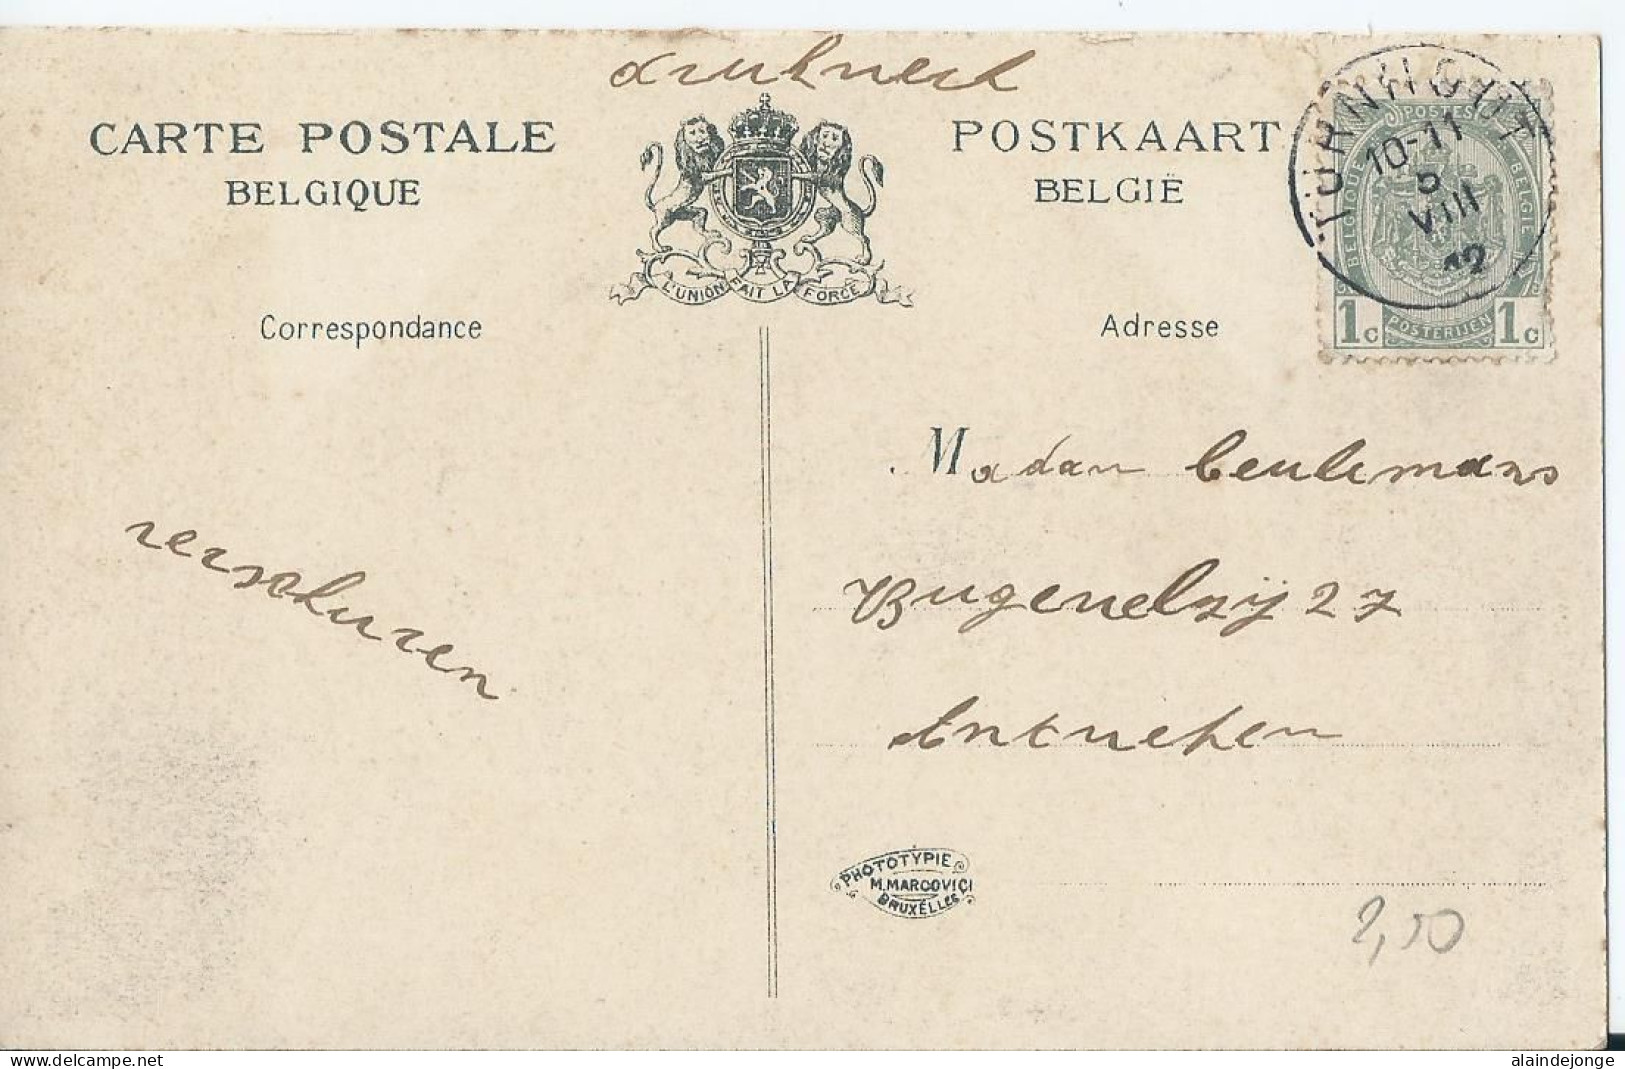 drukwerk
CARTE POSTALE
BELGIQUE
L'UNION FAIT LA FORCE
POSTKAART
BELGIË
TURNHOUT
10-11
5
VIII
12
POSTES
BELGIQUE
BELGIË
1c POSTERIJEN 1c
Correspondance
Adresse
Madam Ceulemans
verschueren
27
PHOTOTYPIE
M.MARCOVICI
BRUXELLES
2,50
www.delcampe.net
alaindejonge